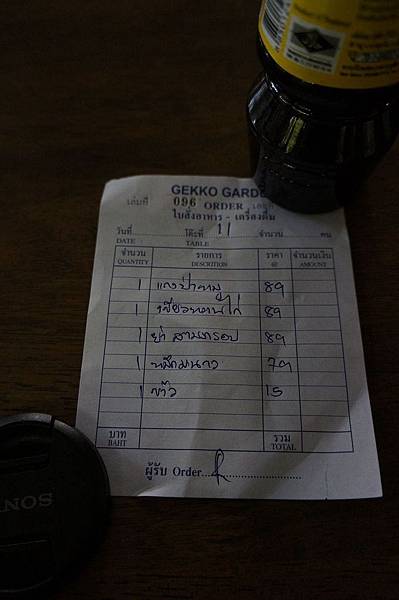 GEKKO GARDE
เล่มที่ 096 ORDER เลขที่
ใบสั่งอาหาร - เครื่องดื่ม
วันที่ โต๊ะที่ 11 จำนวน คน
DATE TABLE
จำนวน รายการ ราคา จำนวนเงิน
QUANTITY DESCRITION @ AMOUNT
1 แกงป่าหมู 89
1 เขียวหวานไก่ 89
1 ยำ สามกรอบ 89
1 หมึกมะนาว 79
1 ข้าว 15
บาท รวม
BAHT TOTAL
ผู้รับ Order
SONY